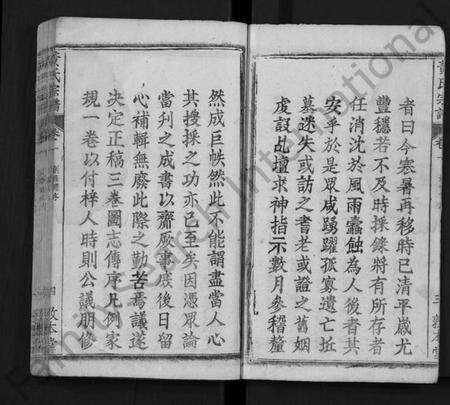 者曰今寒暑再移時已清平歲尤
豐穩若不及時採錄將有所存者
任消沈於風雨蠹蝕為人後者其
安乎於是眾咸踴躍孤寡遺亡坵
墓迷失或訪之耆老或證之舊姻
虔設乩壇求神指示數月參稽釐
然成巨帙然此不能謂盡當人心
其搜採之功亦已至矣因憑眾論
當刊之成書以齊厥事庶後日留
心補輯無廢此際之勤苦焉議遂
決定正稿三卷圖志傳序凡例家
規一卷以付梓人時則公議朋修
黃氏宗譜
卷一
敦本堂
黃氏宗譜
卷一
三
Family Search International